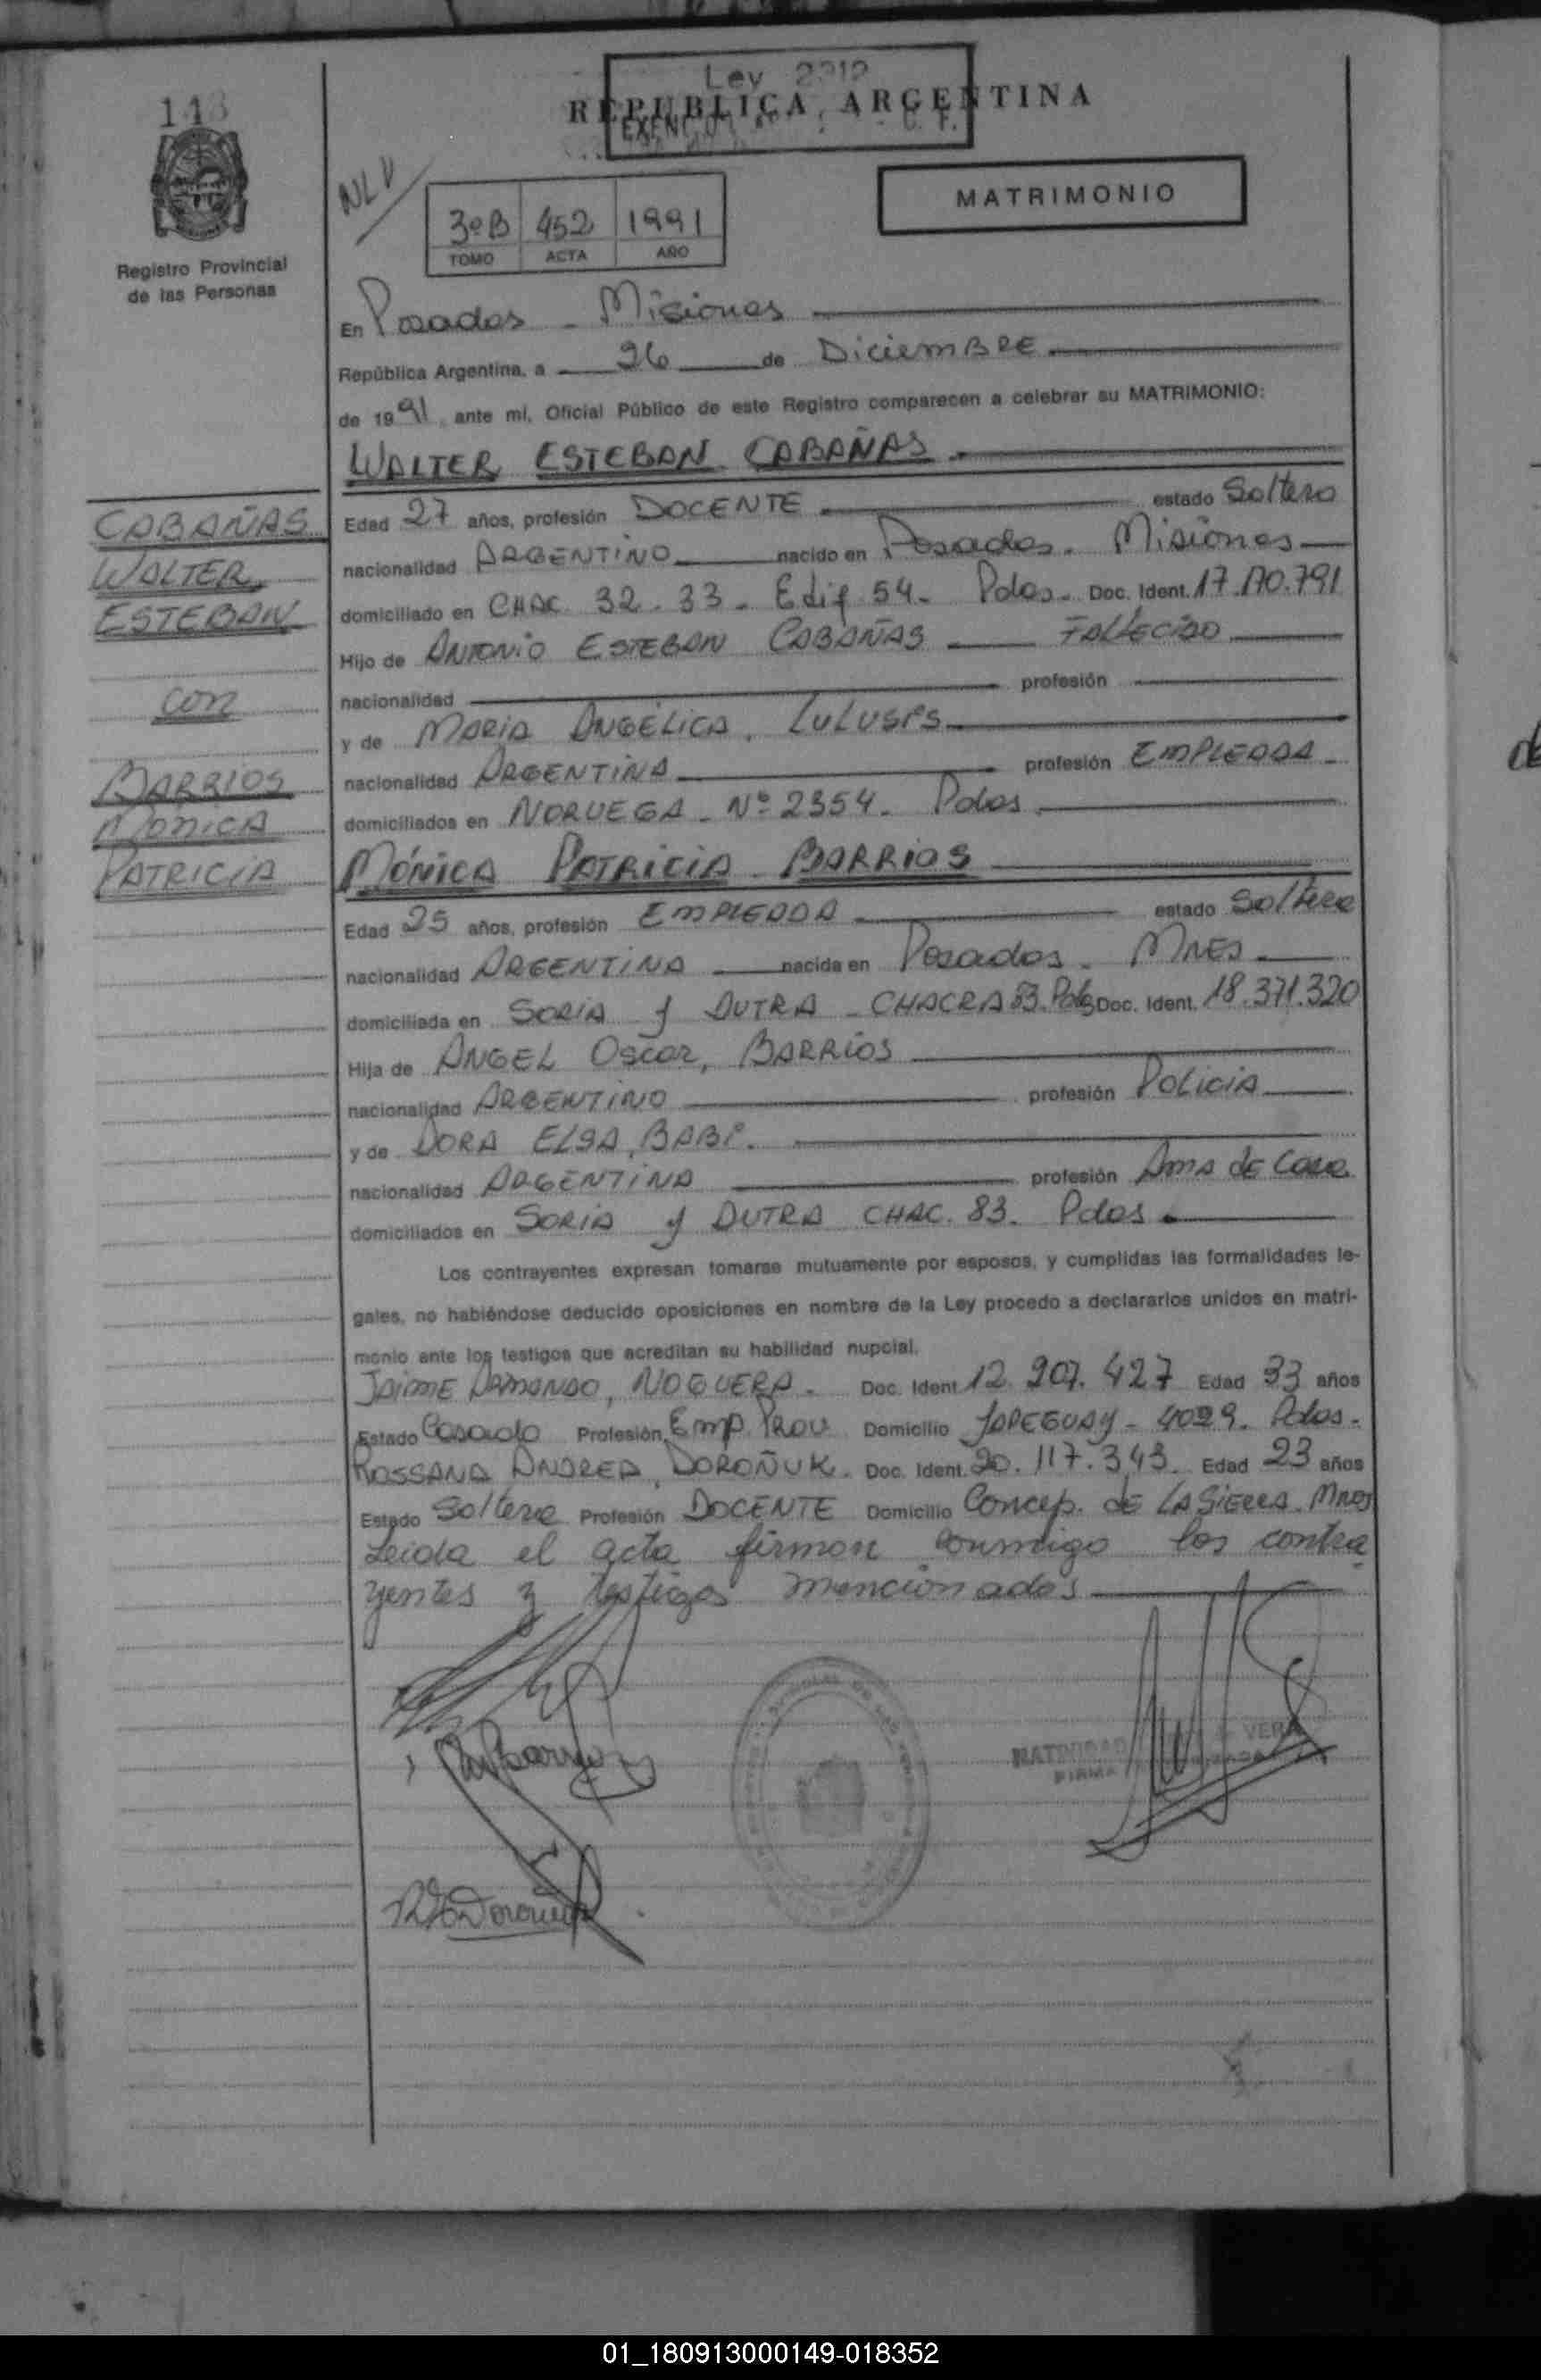 113
Registro Provincial
de las Personas
Ley 2312
REPUBLICA ARGENTINA
NLV
MATRIMONIO
3ºB 452 1991
TOMO ACTA AÑO
En Posadas - Misiones
República Argentina, a 26 de DiciemBRE
de 1991, ante mí, Oficial Público de este Registro comparecen a celebrar su MATRIMONIO:
WALTER ESTEBAN CABAÑAS
CABAÑAS
WALTER
ESTEBAN
con
BARRIOS
MONICA
PATRICIA
Edad 27 años, profesión DOCENTE estado Soltero
nacionalidad ARGENTINO nacido en Posadas. Misiones
domiciliado en CHAC. 32-33- Edif 54- Pdas- Doc. Ident. 17.170.791
Hijo de ANTONIO ESTEBAN CABAÑAS FALLECIDO
nacionalidad profesión
y de MARIA ANGÉLICA,
nacionalidad ARGENTINA profesión EMPLEADA
domiciliados en NORUEGA - Nº 2354. Pdas.
MÓNICA PATRICIA BARRIOS
Edad 25 años, profesión EMPLEADA estado Soltera
nacionalidad ARGENTINA nacida en Posadas. MNES
domiciliada en SORIA y DUTRA - CHACRA 83. Pdas Doc. Ident. 18.371.320
Hija de ANGEL Oscar, BARRIOS
nacionalidad ARGENTINO profesión POLICIA
y de DORA ELSA,
nacionalidad ARGENTINA profesión Ama de Casa
domiciliados en SORIA y DUTRA CHAC. 83. Pdas.
Los contrayentes expresan tomarse mutuamente por esposos, y cumplidas las formalidades le-
gales, no habiéndose deducido oposiciones en nombre de la Ley procedo a declararlos unidos en matri-
monio ante los testigos que acreditan su habilidad nupcial.
JAIME ARMANDO, NOGUERA. Doc. Ident. 12.207.427 Edad 33 años
Estado Casado Profesión Emp. Prov. Domicilio YAPEGUAY - 4029. Pdas.
ROSSANA ANDREA, DOROÑUK. Doc. Ident. 20.117.343. Edad 23 años
Estado Soltera Profesión DOCENTE Domicilio Concep. de LA SIERRA. Mnes
Leida el acta firman conmigo los contra
yentes y testigos mencionados
NATIVIDAD VERA
FIRMA
01_180913000149-018352